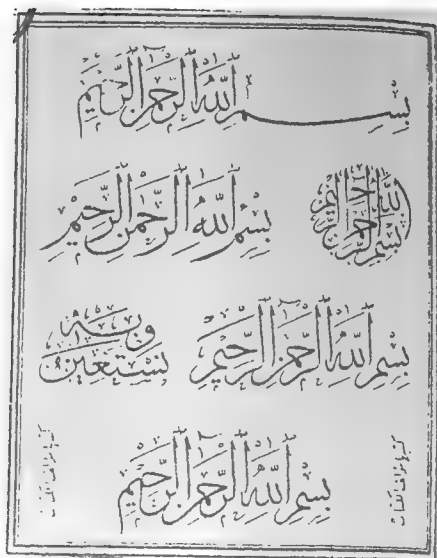 بِسْمِ اللَّهِ الرَّحْمَنِ الرَّحِيمِ
بِسْمِ اللَّهِ الرَّحْمَنِ الرَّحِيمِ
بِسْمِ اللَّهِ الرَّحْمَنِ الرَّحِيمِ
بِسْمِ اللَّهِ الرَّحْمَنِ الرَّحِيمِ
وَبِهِ نَسْتَعِينُ
بِسْمِ اللَّهِ الرَّحْمَنِ الرَّحِيمِ